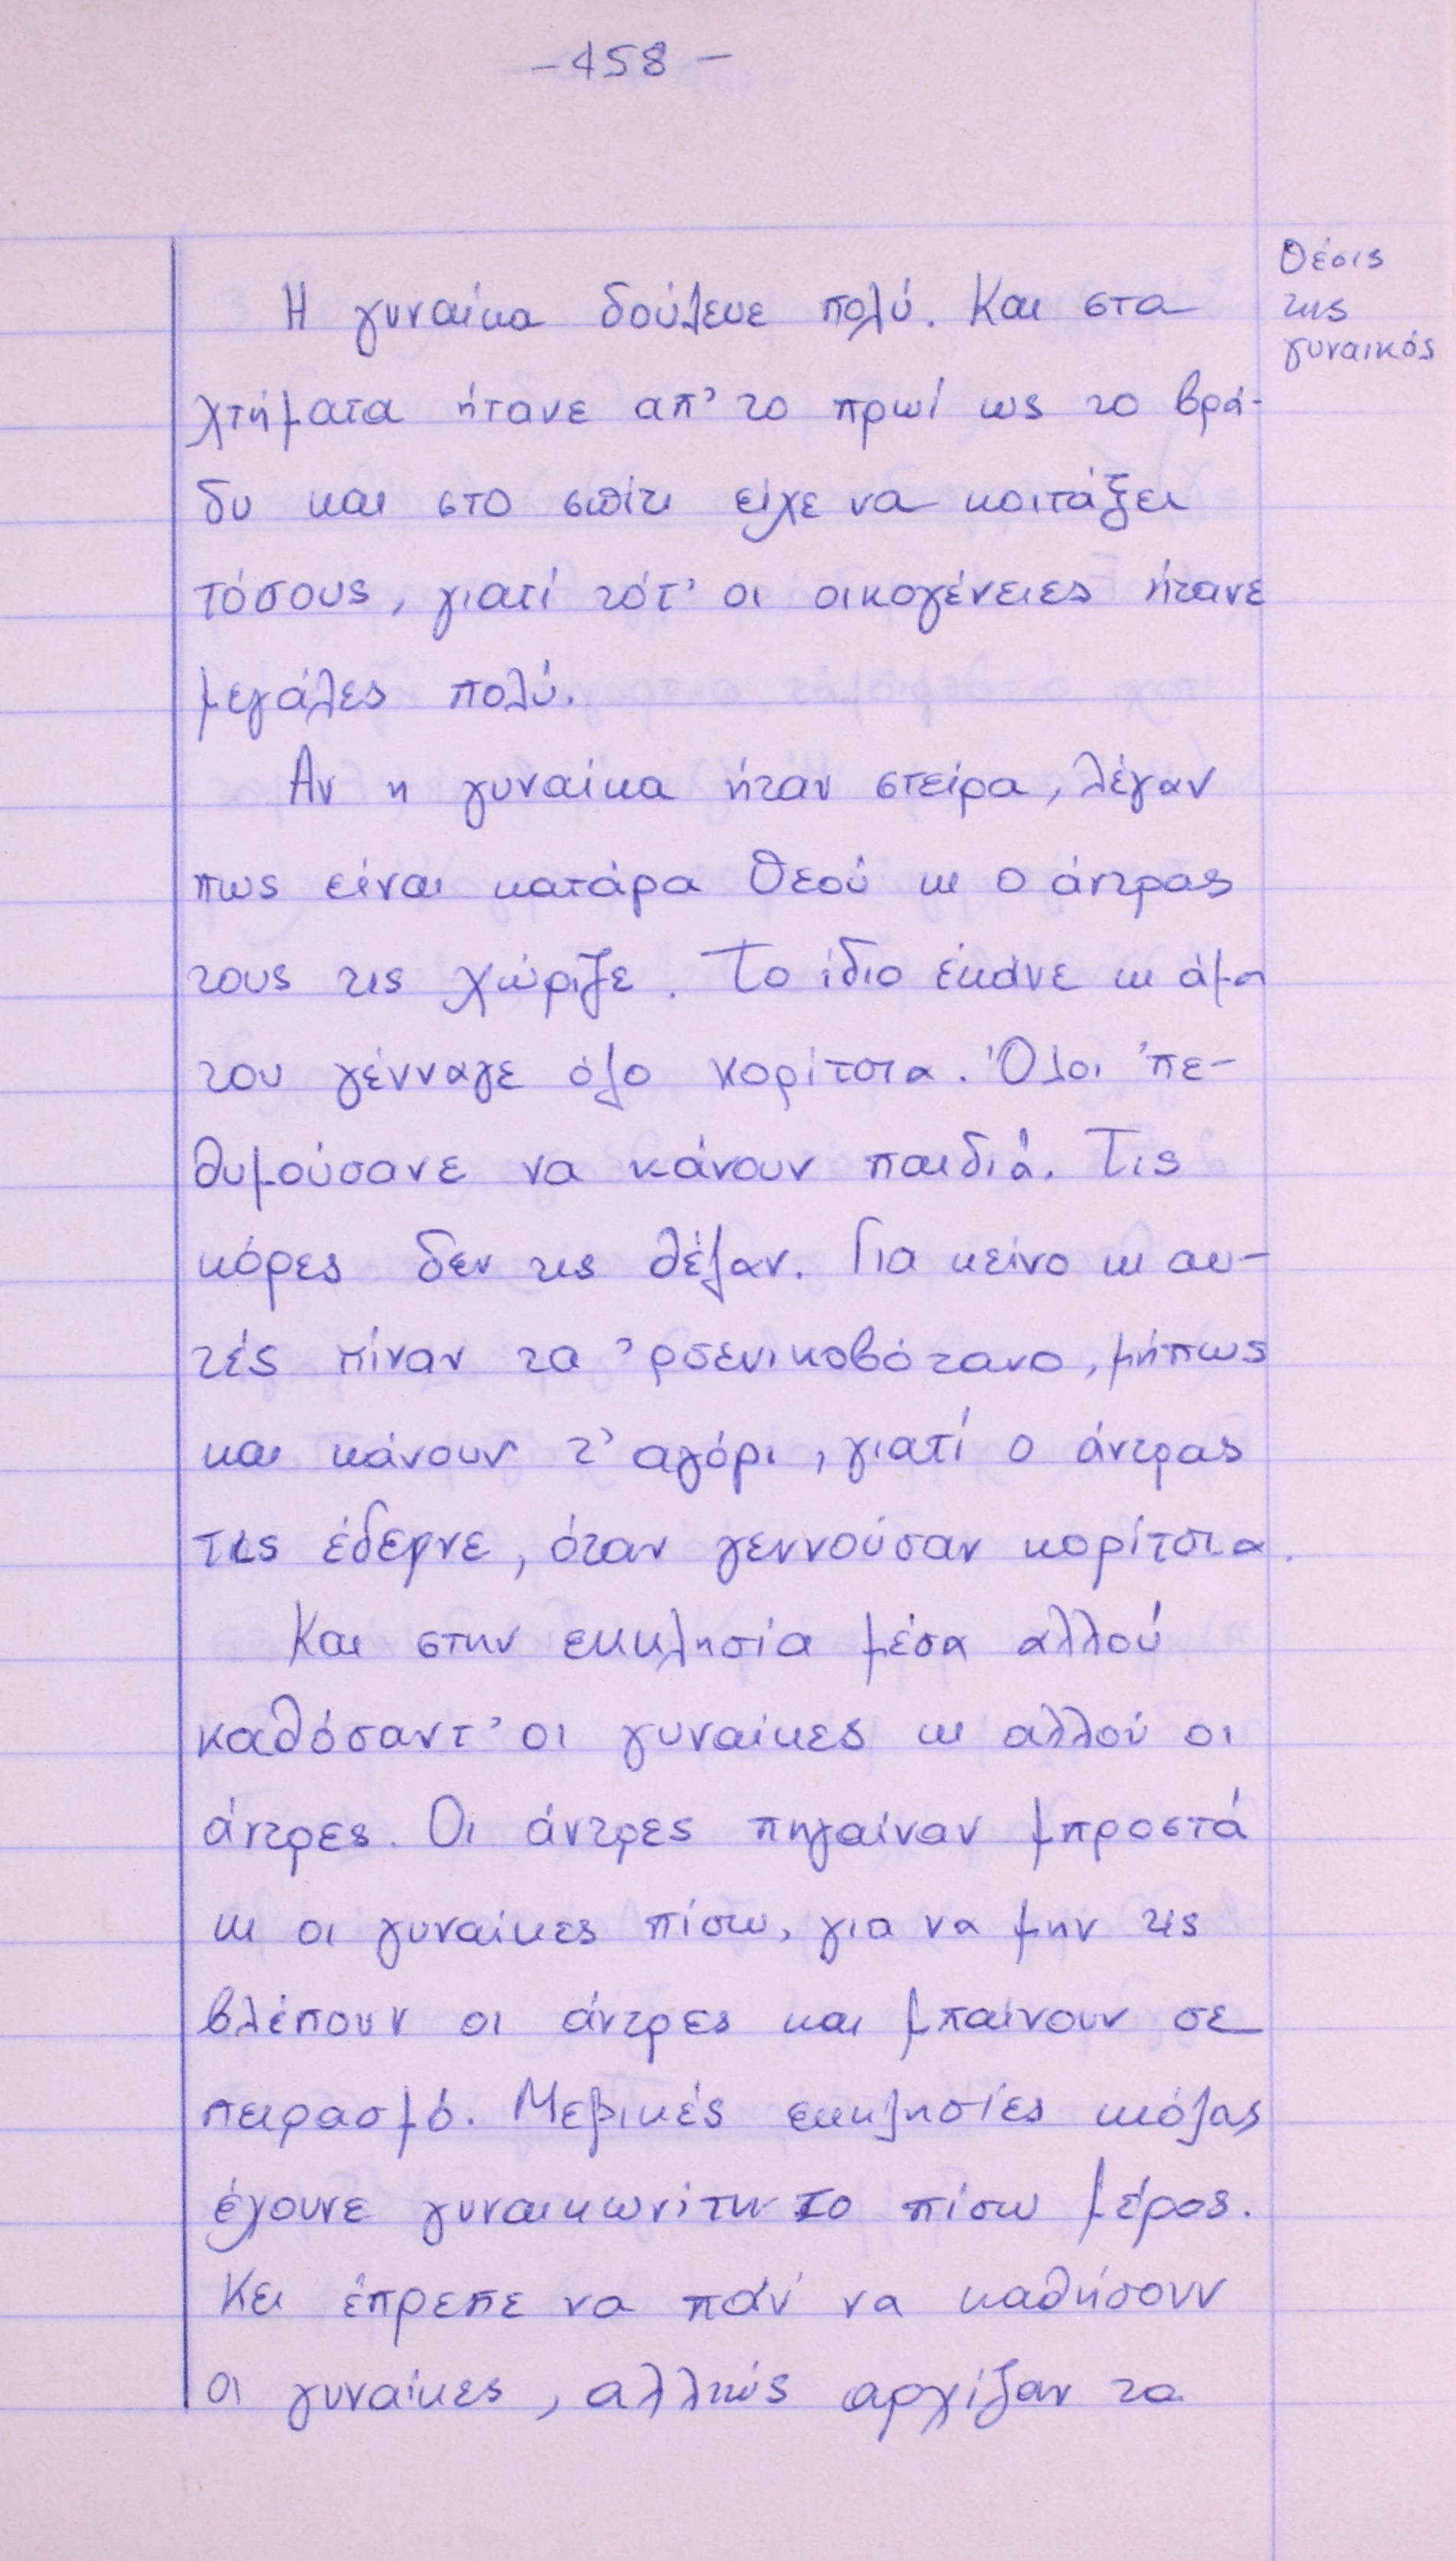 -458-
Θέσις
της
γυναικός
Η γυναίκα δούλευε πολύ. Και στα
χτήματα ήτανε απ' το πρωί ως το βρά-
δυ και στο σπίτι είχε να κοιτάξει
τόσους, γιατί τότ' οι οικογένειες ήτανε
μεγάλες πολύ.
Αν η γυναίκα ήταν στείρα, λέγαν
πως είναι κατάρα Θεού κι ο άντρας
τους τις χώριζε. Το ίδιο έκανε κι άμα
του γένναγε όλο κορίτσια. Όλοι 'πε-
θυμούσανε να κάνουν παιδιά. Τις
κόρες δεν τις θέλαν. Για κείνο κι αυ-
τές πίναν το 'ρσενικοβότανο, μήπως
και κάνουν τ' αγόρι, γιατί ο άντρας
τις έδερνε, όταν γεννούσαν κορίτσια.
Και στην εκκλησία μέσα αλλού
καθόσαντ' οι γυναίκες κι αλλού οι
άντρες. Οι άντρες πηγαίναν μπροστά
κι οι γυναίκες πίσω, για να μην τις
βλέπουν οι άντρες και μπαίνουν σε
πειρασμό. Μερικές εκκλησίες κιόλας
έχουνε γυναικωνίτη το πίσω μέρος.
Κει έπρεπε να πάν' να καθήσουν
οι γυναίκες, αλλιώς αρχίζαν τα